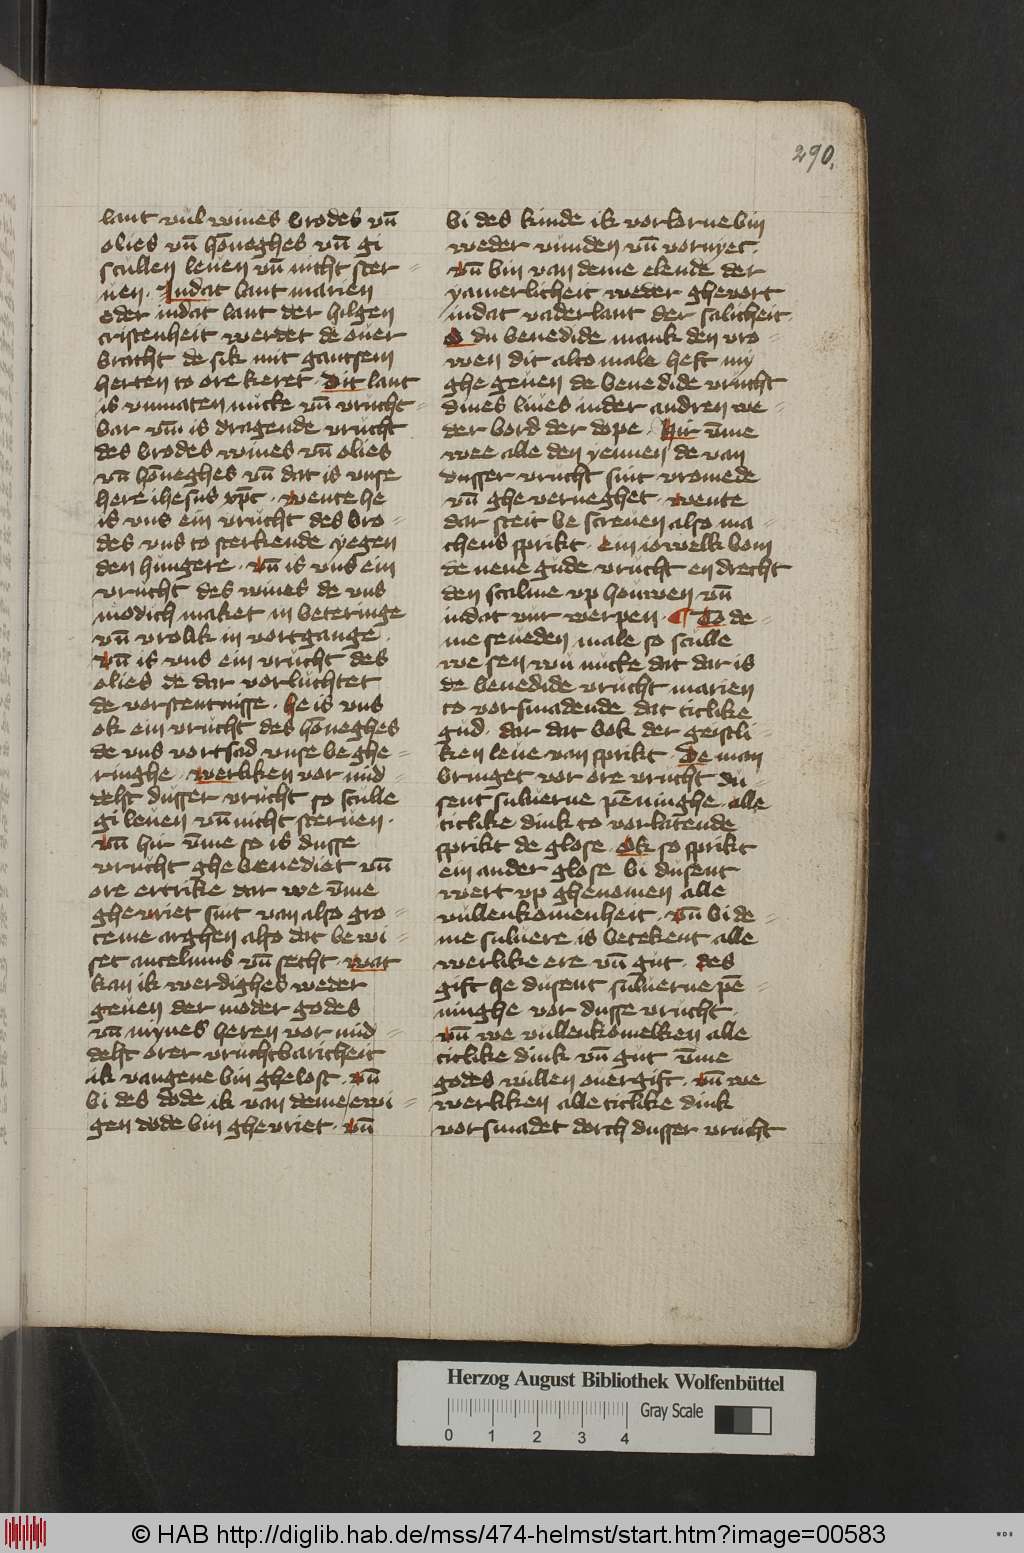 290.
lant vul wines brodes vn̄
olies vn̄ hōneghes vn̄ gi
scullen leuen vn̄ nicht ster=
uen. Indat lant marien
eder indat lant der hilgen
cristenheit werdet de ouer
bracht de sik mit gantsem
herten to ore keret. Dit lant
is vnmaten nucke vn̄ vrucht=
bar vn̄ is dragende vrucht
des brodes wines vn̄ olies
vn̄ hōneghes vn̄ dat is vnse
here ihesus xp̄c. wente he
is vns ein vrucht des bro=
des vns to sterkende yegen
den hungere. vn̄ is vns ein
vrucht des wines de vns
modich maket in beteringe
vn̄ vrolik in vortgange.
vn̄ is vns ein vrucht des
olies de dar vorluchtet
de vorstentnisse. he is vns
ok ein vrucht des hōneghes
de vns vortsad vnse beghe=
ringhe. werliken vor mid=
delst dusser vrucht so sculle
gi leuen vn̄ nicht steruen.
vn̄ hir v̄me so is dusse
vrucht ghebenediet vn̄
ore ertrike dar we v̄me
ghevriet sint van also gro=
teme arghen also dat bewi=
set ancelmus vn̄ secht. wat
kan ik werdighes weder
geuen der moder godes
vn̄ mynes heren vor mid=
delst orer vruchtbaricheit
ik vangene bin ghelost. vn̄
bi des dode ik van deme ewi=
gen dode bin ghevriet. vn̄
bi des kinde ik vorlorne bin
weder vunden vn̄ vornyet.
vn̄ bin van deme elende der
yamerlicheit weder ghevort
indat vaderlant der salicheit.
O du benedide mank den vro=
wen dit alto male heft my
ghegeuen de benedide vrucht
dines liues inder andren we=
der bord der dope. hir v̄me
wee alle den yennen de van
dusser vrucht sint vromede
vn̄ ghe verneghet. wente
dar steit be screuen also ma=
theus sprikt. ein iowelk bom
de nene gude vrucht en drecht
den scalme vp houwen vn̄
indat vur werpen. ¶ To de=
me seueden male so sculle
we sen wu nucke dat dar is
de benedide vrucht marien
to vorsmadende dat titlike
gud. dar dat bok der geistli=
ken leue van sprikt. De man
bringet vor ore vrucht du=
sent suluerne pēninghe. alle
titlike dink to vorlatende
sprikt de glose. Ok so sprikt
ein ander glose bi dusent
wert vp ghenomen alle
vullenkomenheit. vn̄ bi de=
me suluere is betekent alle
werlike ere vn̄ gut. des
gift he dusent suluerne pē=
ninghe vor dusse vrucht.
vn̄ we vullenkomelken alle
titlike dink vn̄ gut v̄me
godes willen ouergift. vn̄ we
werliken alle titlike dink
vorsmadet dorch dusser vrucht
Herzog August Bibliothek Wolfenbüttel
Gray Scale
0 1 2 3 4
© HAB http://diglib.hab.de/mss/474-helmst/start.htm?image=00583